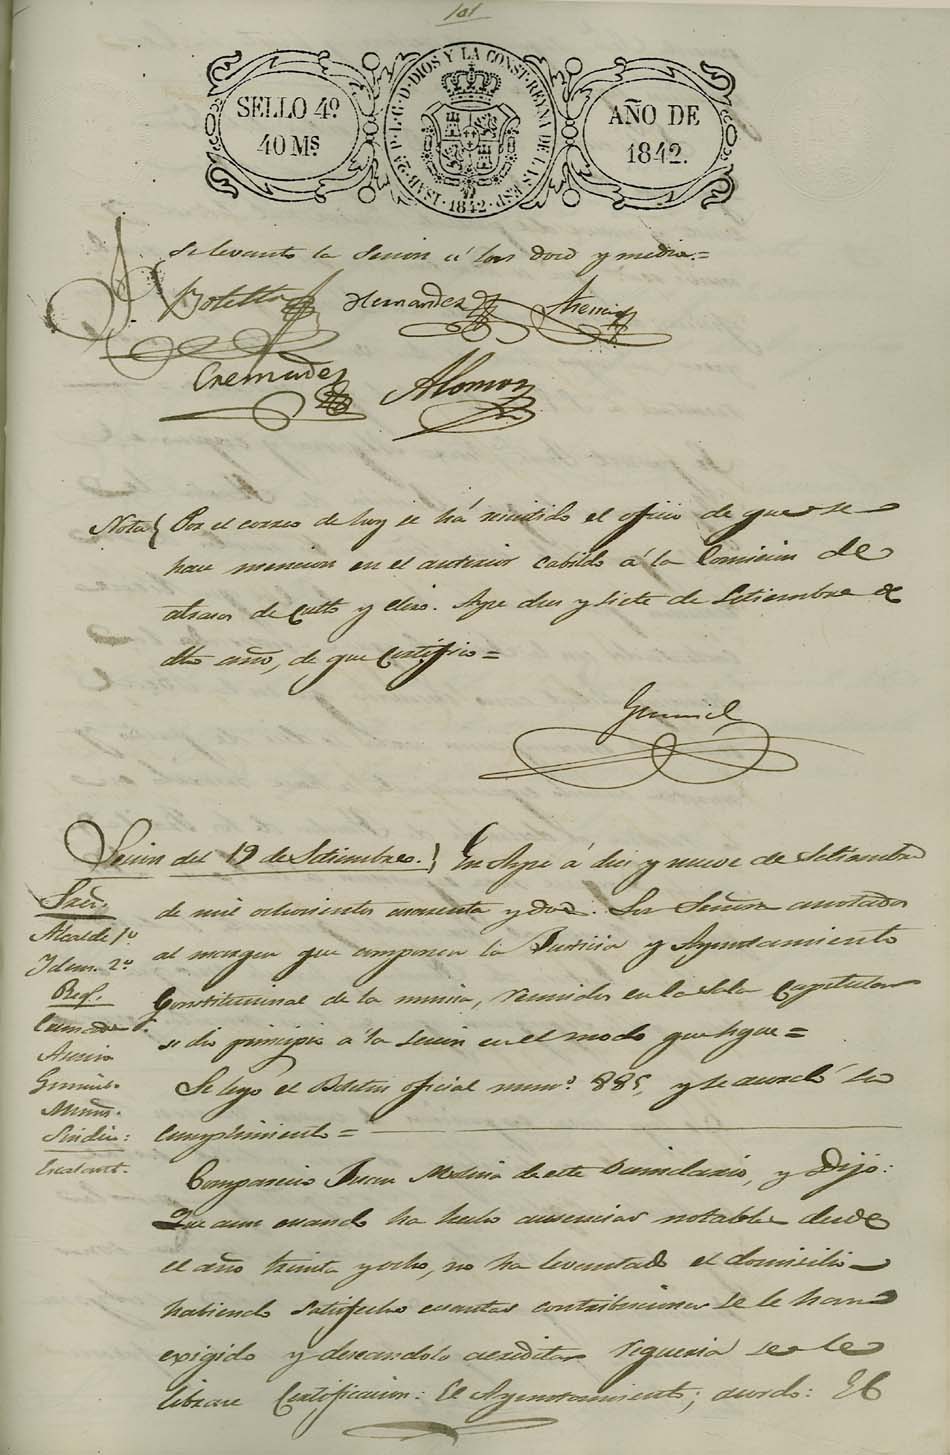 101
SELLO 4º
40 Mˢ
ISAB. 2ª P. L. G. D. DIOS Y LA CONST. REYNA DE LAS ESP. 1842
AÑO DE
1842.
se levantó la sesion á las doce y media.=
Botella Hernandez Asencio
Cremades Alonso
Nota{ Por el correo de hoy se há remitido el oficio de que se
hace mencion en el anterior Cabildo á la Comision de
atrasos de Culto y Clero. Aspe diez y siete de Setiembre de
dho año, de que Certifico=
Sesion del 19 de Setiembre.} En Aspe á diez y nueve de Setiembre
de mil ochocientos cuarenta y dos. Los Señores anotados
al margen que componen la Justicia y Ayuntamiento
Constitucional de la misma, reunidos en la Sala Capitular
se dio principio á la sesion en el modo que sigue=
Sres.
Alcalde 1º
Idem. 2º
Reg.
Cremades
Asencio
Sindico:
Se leyo el Boletin oficial num.º 885, y se acordó su
cumplimiento=
Comparecio Juan Molina de este Vecindario, y Dijo:
Que aun cuando ha hecho ausencias notables desde
el año treinta y ocho, no ha levantado el domicilio
habiendo satisfecho cuantas contribuciones se le han
exigido y deseandolo acreditar requeria se le
librase Certificacion: El Ayuntamiento; acordo: Se